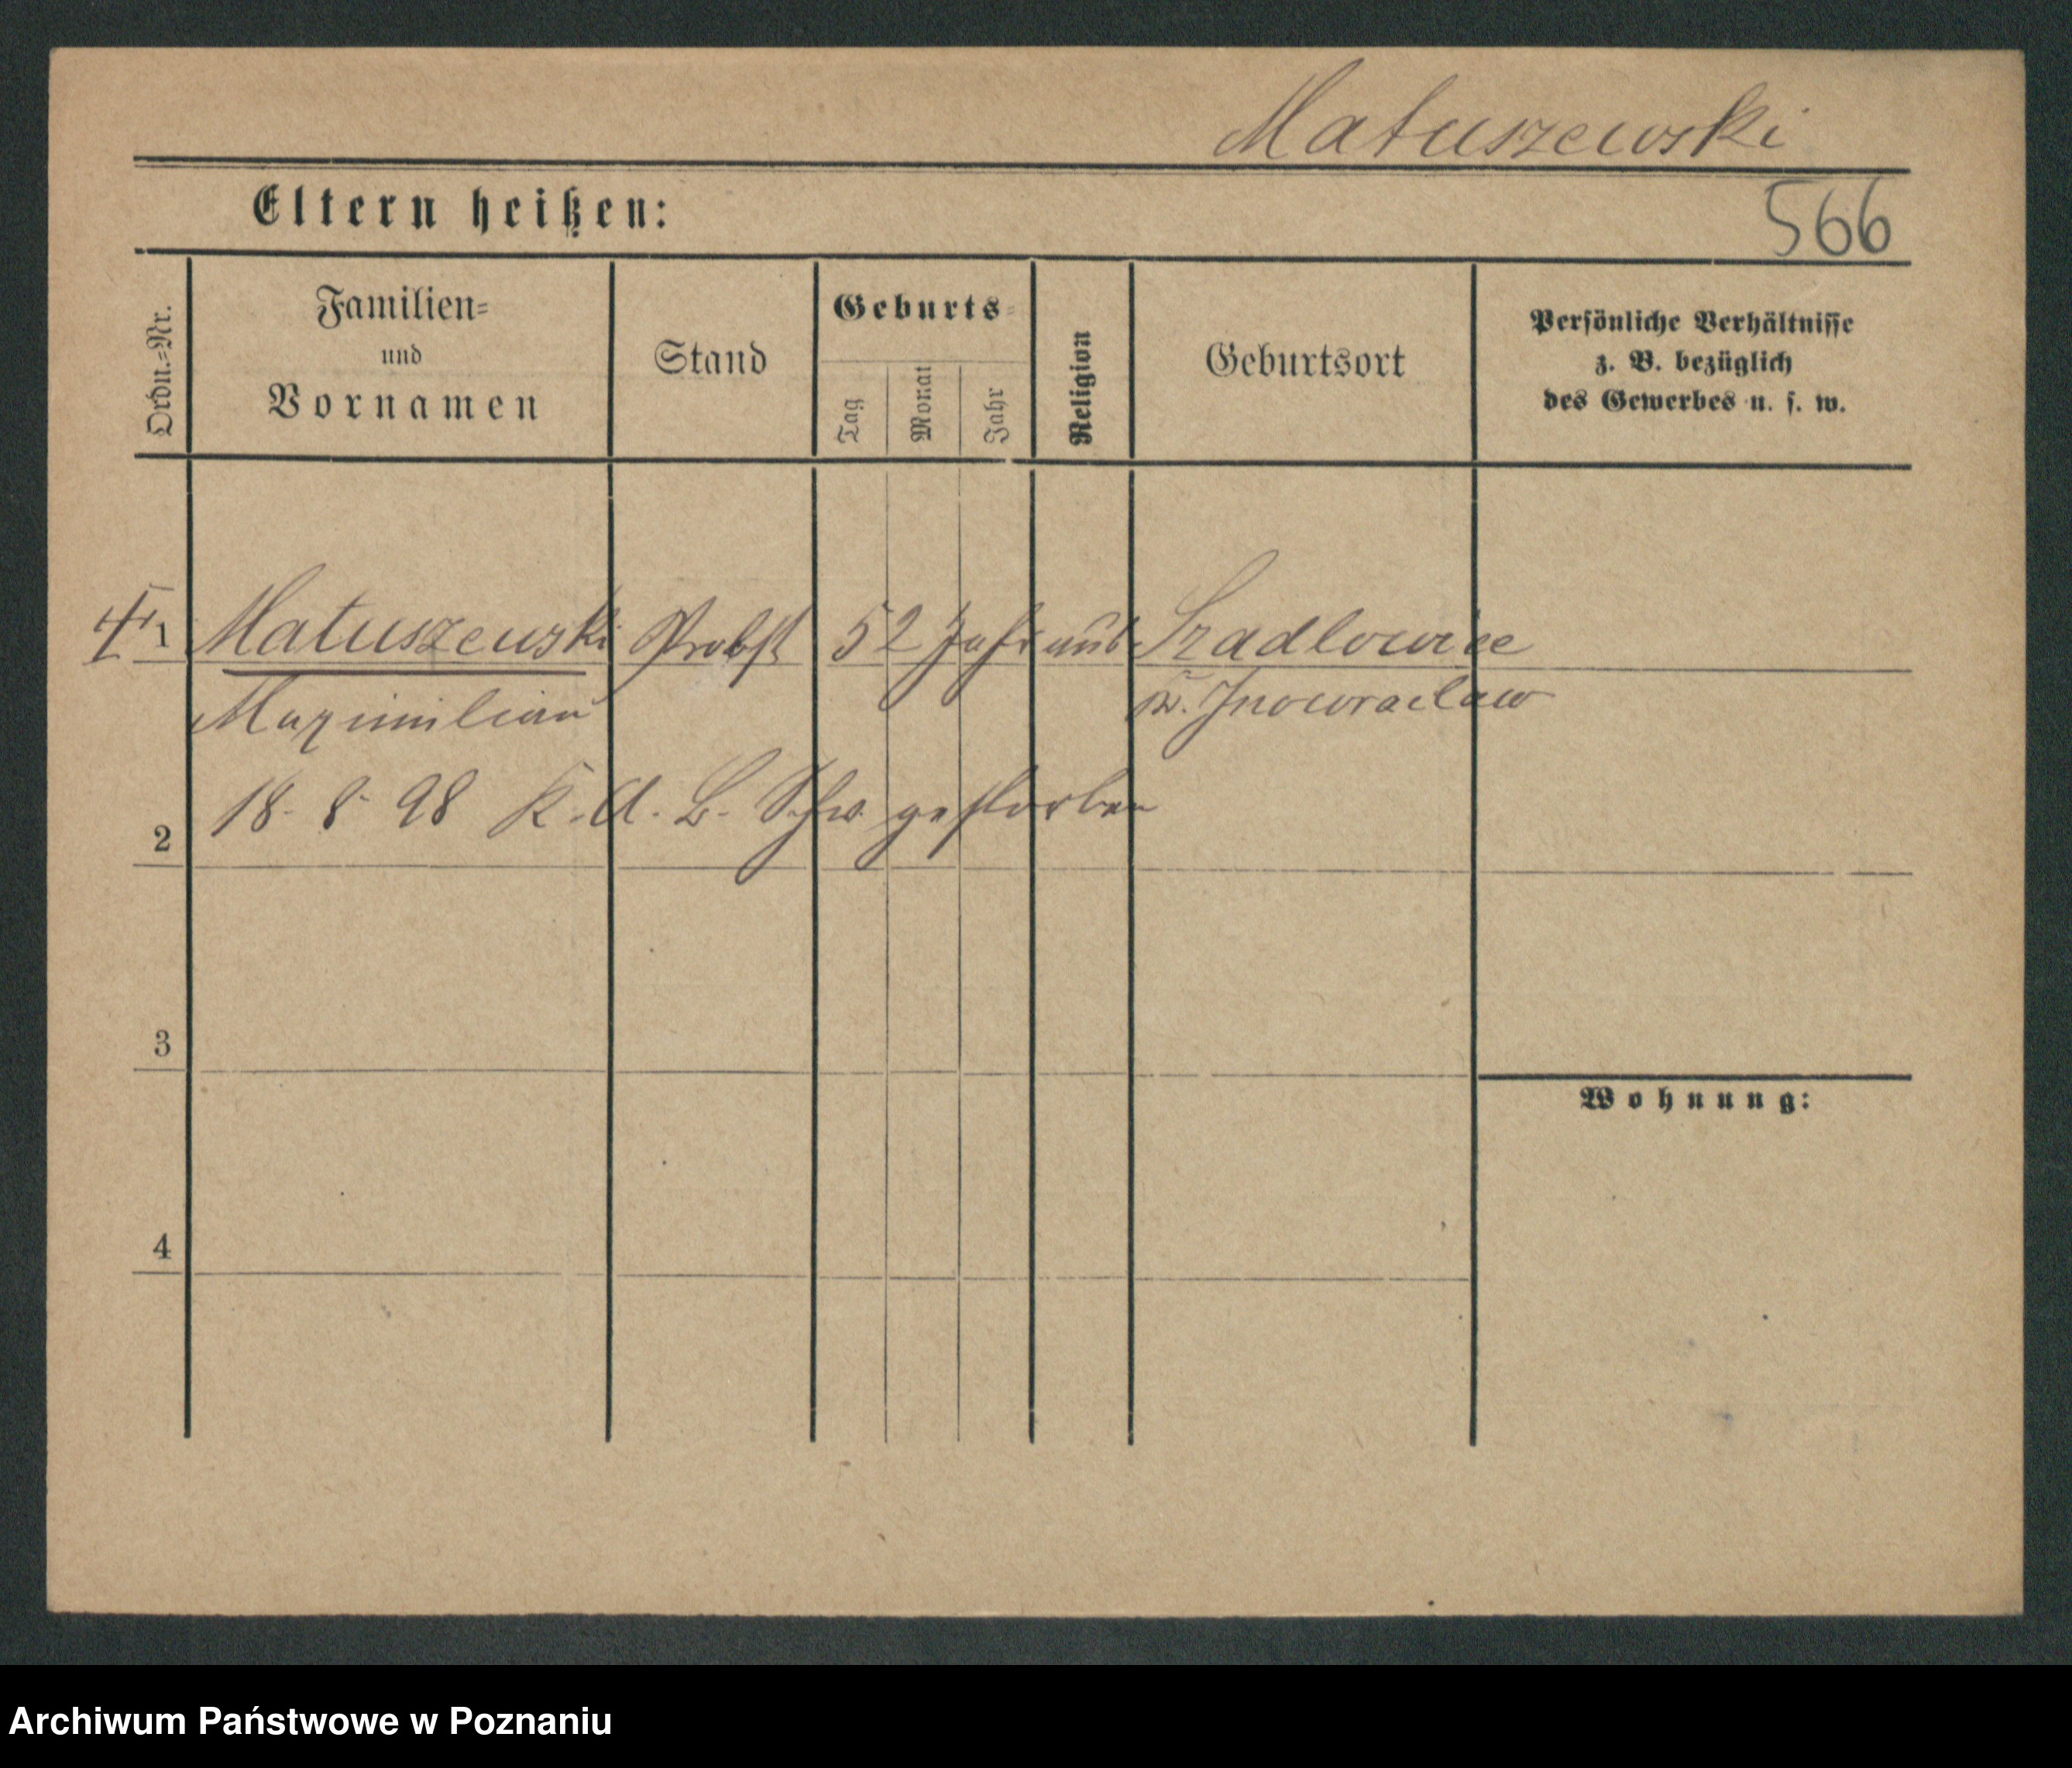 Matuszewski
Eltern heißen:
566
Ordn.=Nr.
Familien=
und
Vornamen
Stand
Geburts=
Tag
Monat
Jahr
Religion
Geburtsort
Persönliche Verhältnisse
z. B. bezüglich
des Gewerbes u. s. w.
1 Matuszewski Probst 52 Jahr aus Szadlowice
Maximilian Kr. Inowraclaw
18. 8. 98 K. A. B. Schw. gestorben
2
3
Wohnung:
4
Archiwum Państwowe w Poznaniu